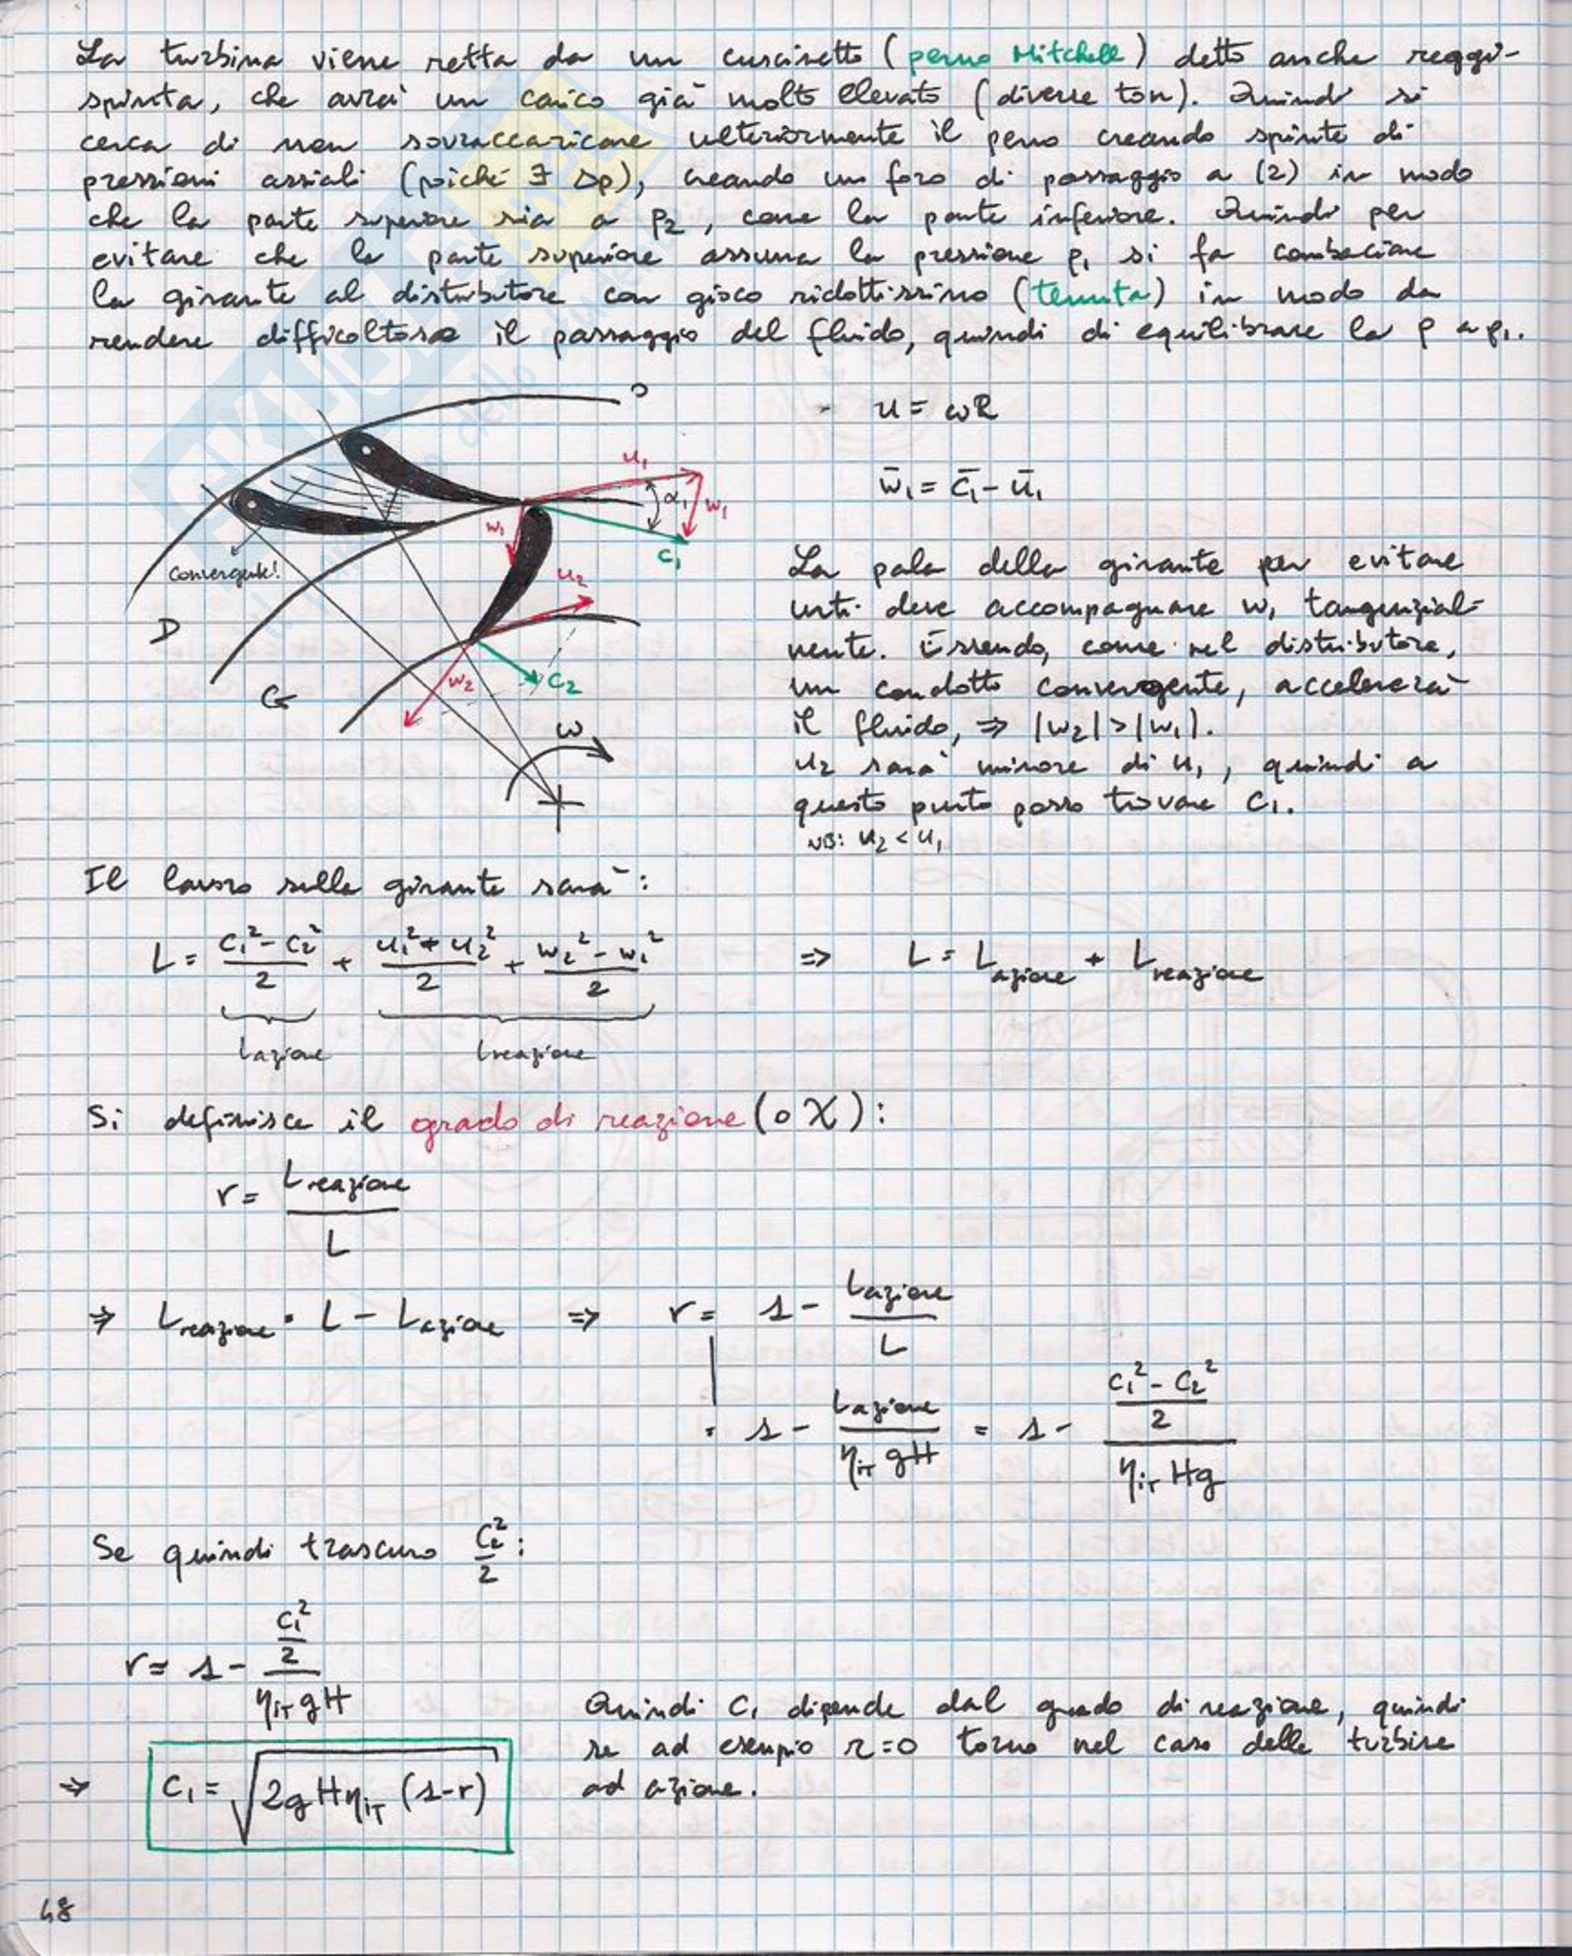 La turbina viene retta da un cuscinetto (perno Mitchell) detto anche reggi-
spinta, che avrà un carico già molto elevato (diverse ton). Quindi si
cerca di non sovraccaricare ulteriormente il perno creando spinte di
pressioni assiali (poiché ∃ Δp), creando un foro di passaggio a (2) in modo
che la parte superiore sia a p₂, come la parte inferiore. Quindi per
evitare che la parte superiore assuma la pressione p₁ si fa combaciare
la girante al distributore con gioco ridottissimo (tenuta) in modo da
rendere difficoltoso il passaggio del fluido, quindi di equilibrare la p a p₁.
u = ωR
w̄₁ = c̄₁ - ū₁
u₁
α₁
w₁
w₁
c₁
u₂
convergente!
D
w₂
c₂
G
ω
La pala della girante per evitare
urti deve accompagnare w₁ tangenzial-
mente. Essendo, come nel distributore,
un condotto convergente, accelererà
il fluido, ⇒ |w₂|>|w₁|.
u₂ sarà minore di u₁, quindi a
questo punto posso trovare c₁.
NB: u₂ < u₁
Il lavoro sulla girante sarà:
L = (c₁² - c₂²)/2 + (u₁² + u₂²)/2 + (w₂² - w₁²)/2 ⇒ L = L azione + L reazione
Lazione Lreazione
Si definisce il grado di reazione (o χ):
r = Lreazione / L
⇒ Lreazione = L - Lazione ⇒ r = 1 - Lazione / L
= 1 - Lazione / (ηiT gH) = 1 - ((c₁² - c₂²)/2) / (ηiT Hg)
Se quindi trascuro c₂²/2:
r = 1 - (c₁²/2) / (ηiT gH)
Quindi c₁ dipende dal grado di reazione, quindi
se ad esempio r=0 torno nel caso delle turbine
ad azione.
⇒ c₁ = √(2gHηiT (1-r))
48